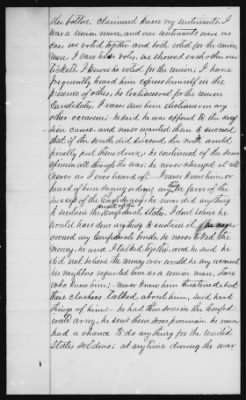 the ballot, claimant knew my sentiments. I
was a union man, and our sentiments were in
one. we voted together and both voted for the union
men. I saw his votes, we showed each other our
tickets. I know he voted for the union; I have
frequently heard him express himself in the
presence of others, he electioneered for the union
Candidates. I never saw him electioneer on any
other occasion: he said he was opposed to the
cause, and never wanted them to succeed
that if the south did succeed, the north would
finally put them down; he continued of the same
opinion all through the war: he never changed at all
never as I ever heard of. I never knew him, or
heard of him saying or doing any in favor of the
success of the Confederacy: he never did anything
to sustain the Confederate States. I don't believe he
would have done anything to sustain it,
owned any Confederate bonds, he never liked the
money. he and I talked together, and he said he
did not believe the money ever would be any account,
his neighbors regarded him as a union man, those
who knew him: I never knew him threatened but
those talked about him, said hard
things of him: he had three sons in the Confed-
erate army, he sent them some provision. he never
had a chance to do anything for the United
States Soldiers: at any time during the war